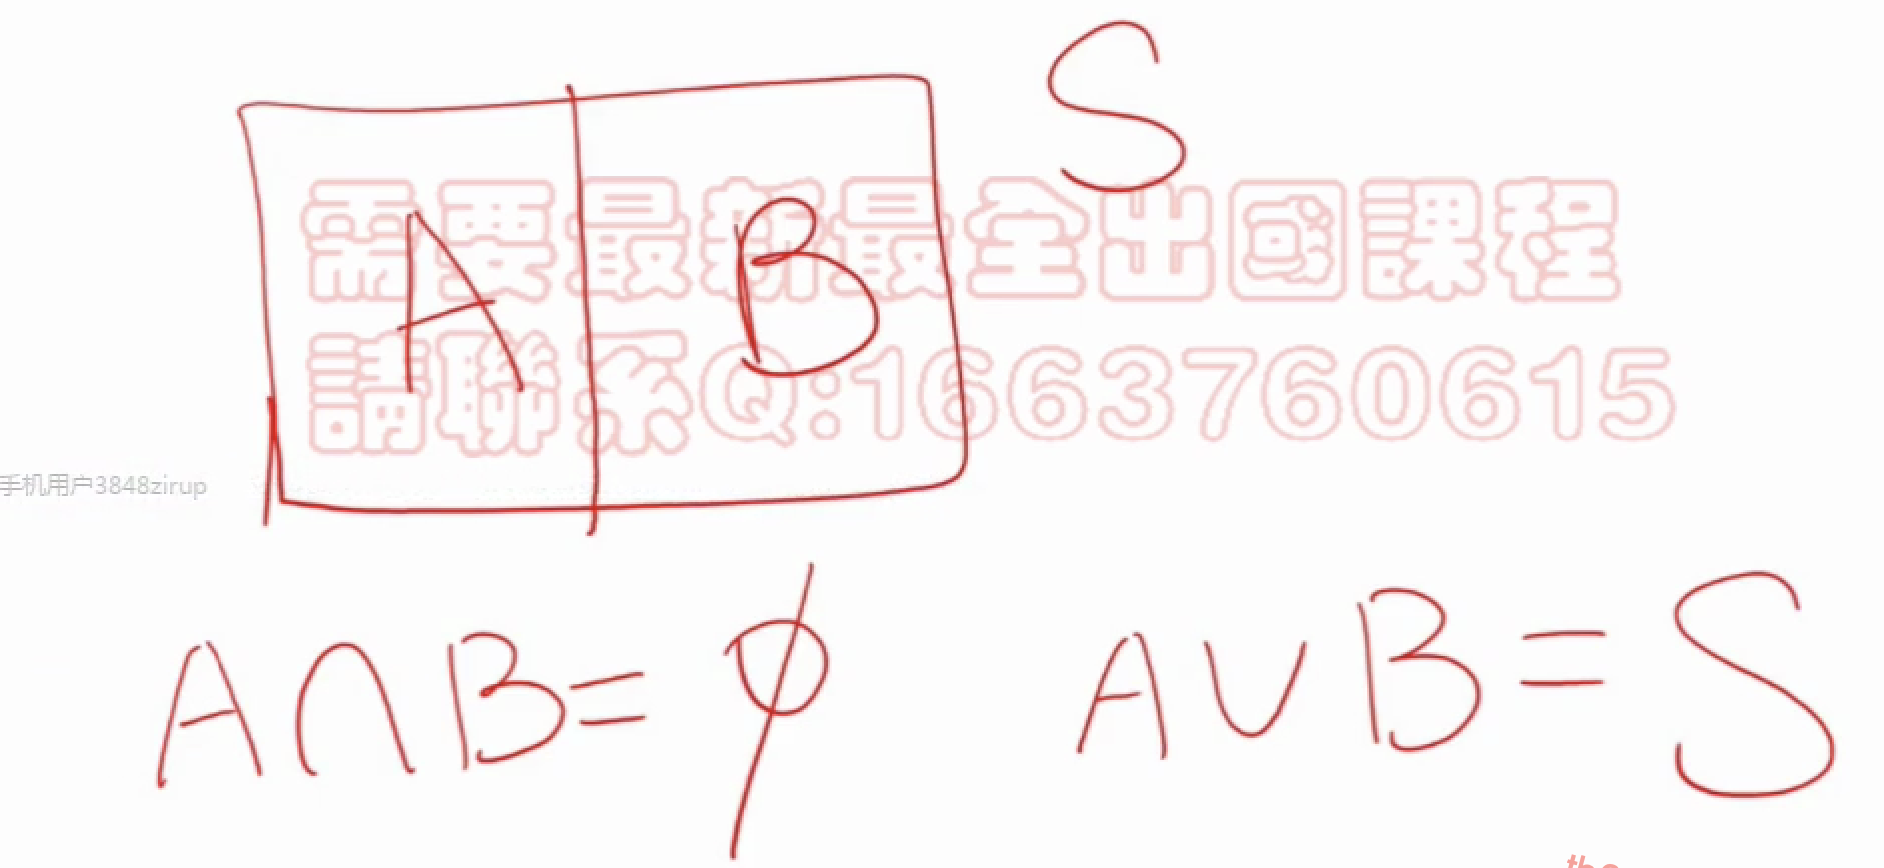 S
A B
需要最新最全出國課程
請聯系Q:1663760615
手机用户3848zirup
A∩B=∅ A∪B=S